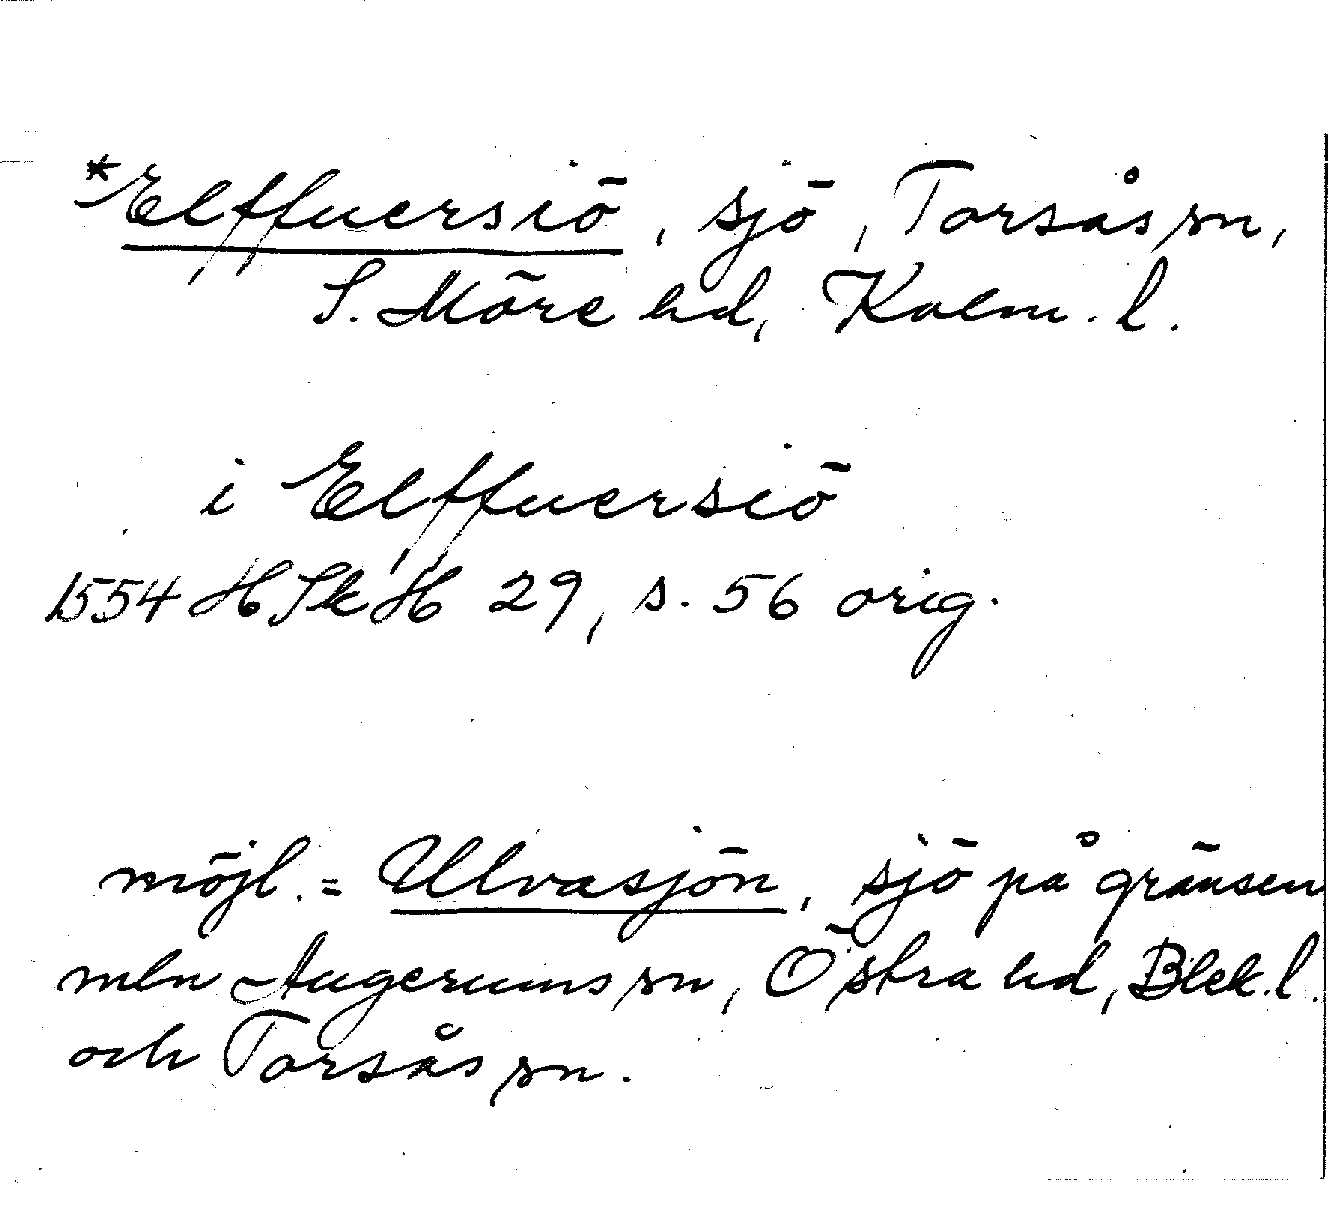 *Elffuersiö, sjö, Torsås sn,
S. Möre hd, Kalm. l.
i Elffuersiö
1554 HSkH 29, s. 56 orig.
möjl. = Ulvasjön, sjö på gränsen
mln Augerums sn, Östra hd, Blek. l.
och Torsås sn.